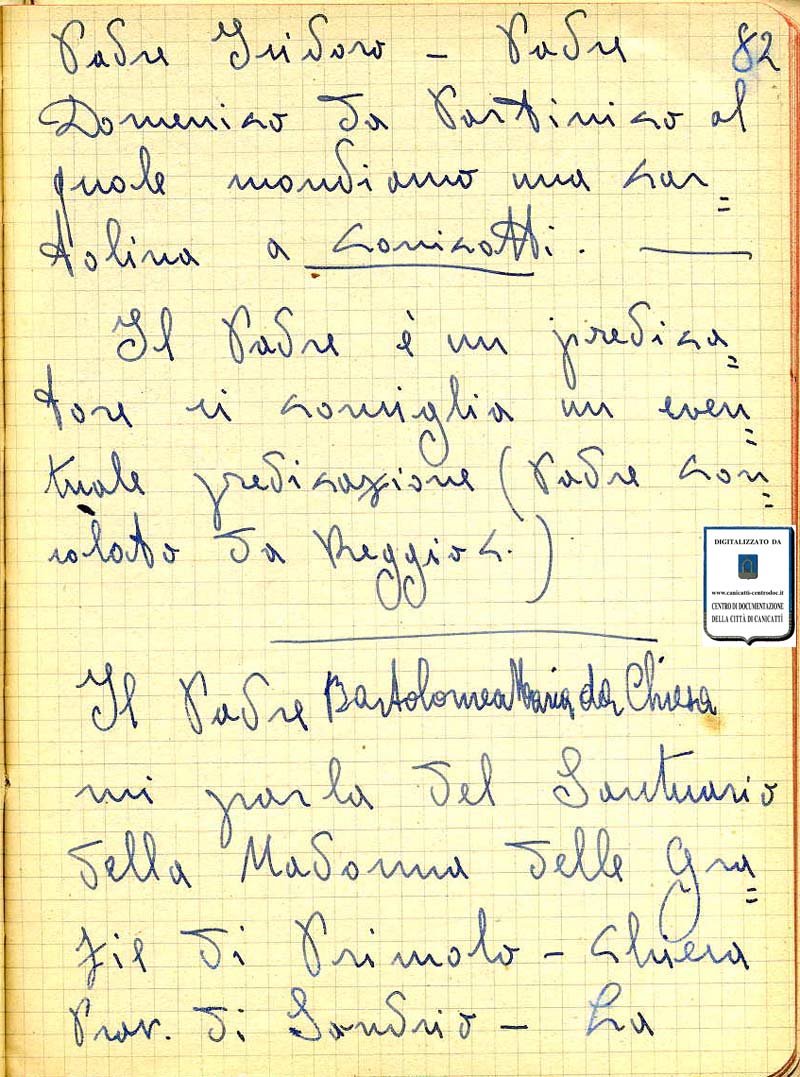 Padre Isidoro - Padre 82
Domenico da Partinico al
quale mandiamo una car=
tolina a Canicattì.
Il Padre è un predica=
tore ci consiglia un even=
tuale predicazione (Padre Con=
solato da Reggio C.)
Il Padre Bartolomea Maria da Chiesa
mi parla del Santuario
della Madonna delle Gra=
zie di Primolo - Chiesa
Prov. di Sondrio - La
DIGITALIZZATO DA
www.canicatti-centrodoc.it
CENTRO DI DOCUMENTAZIONE
DELLA CITTÀ DI CANICATTÌ